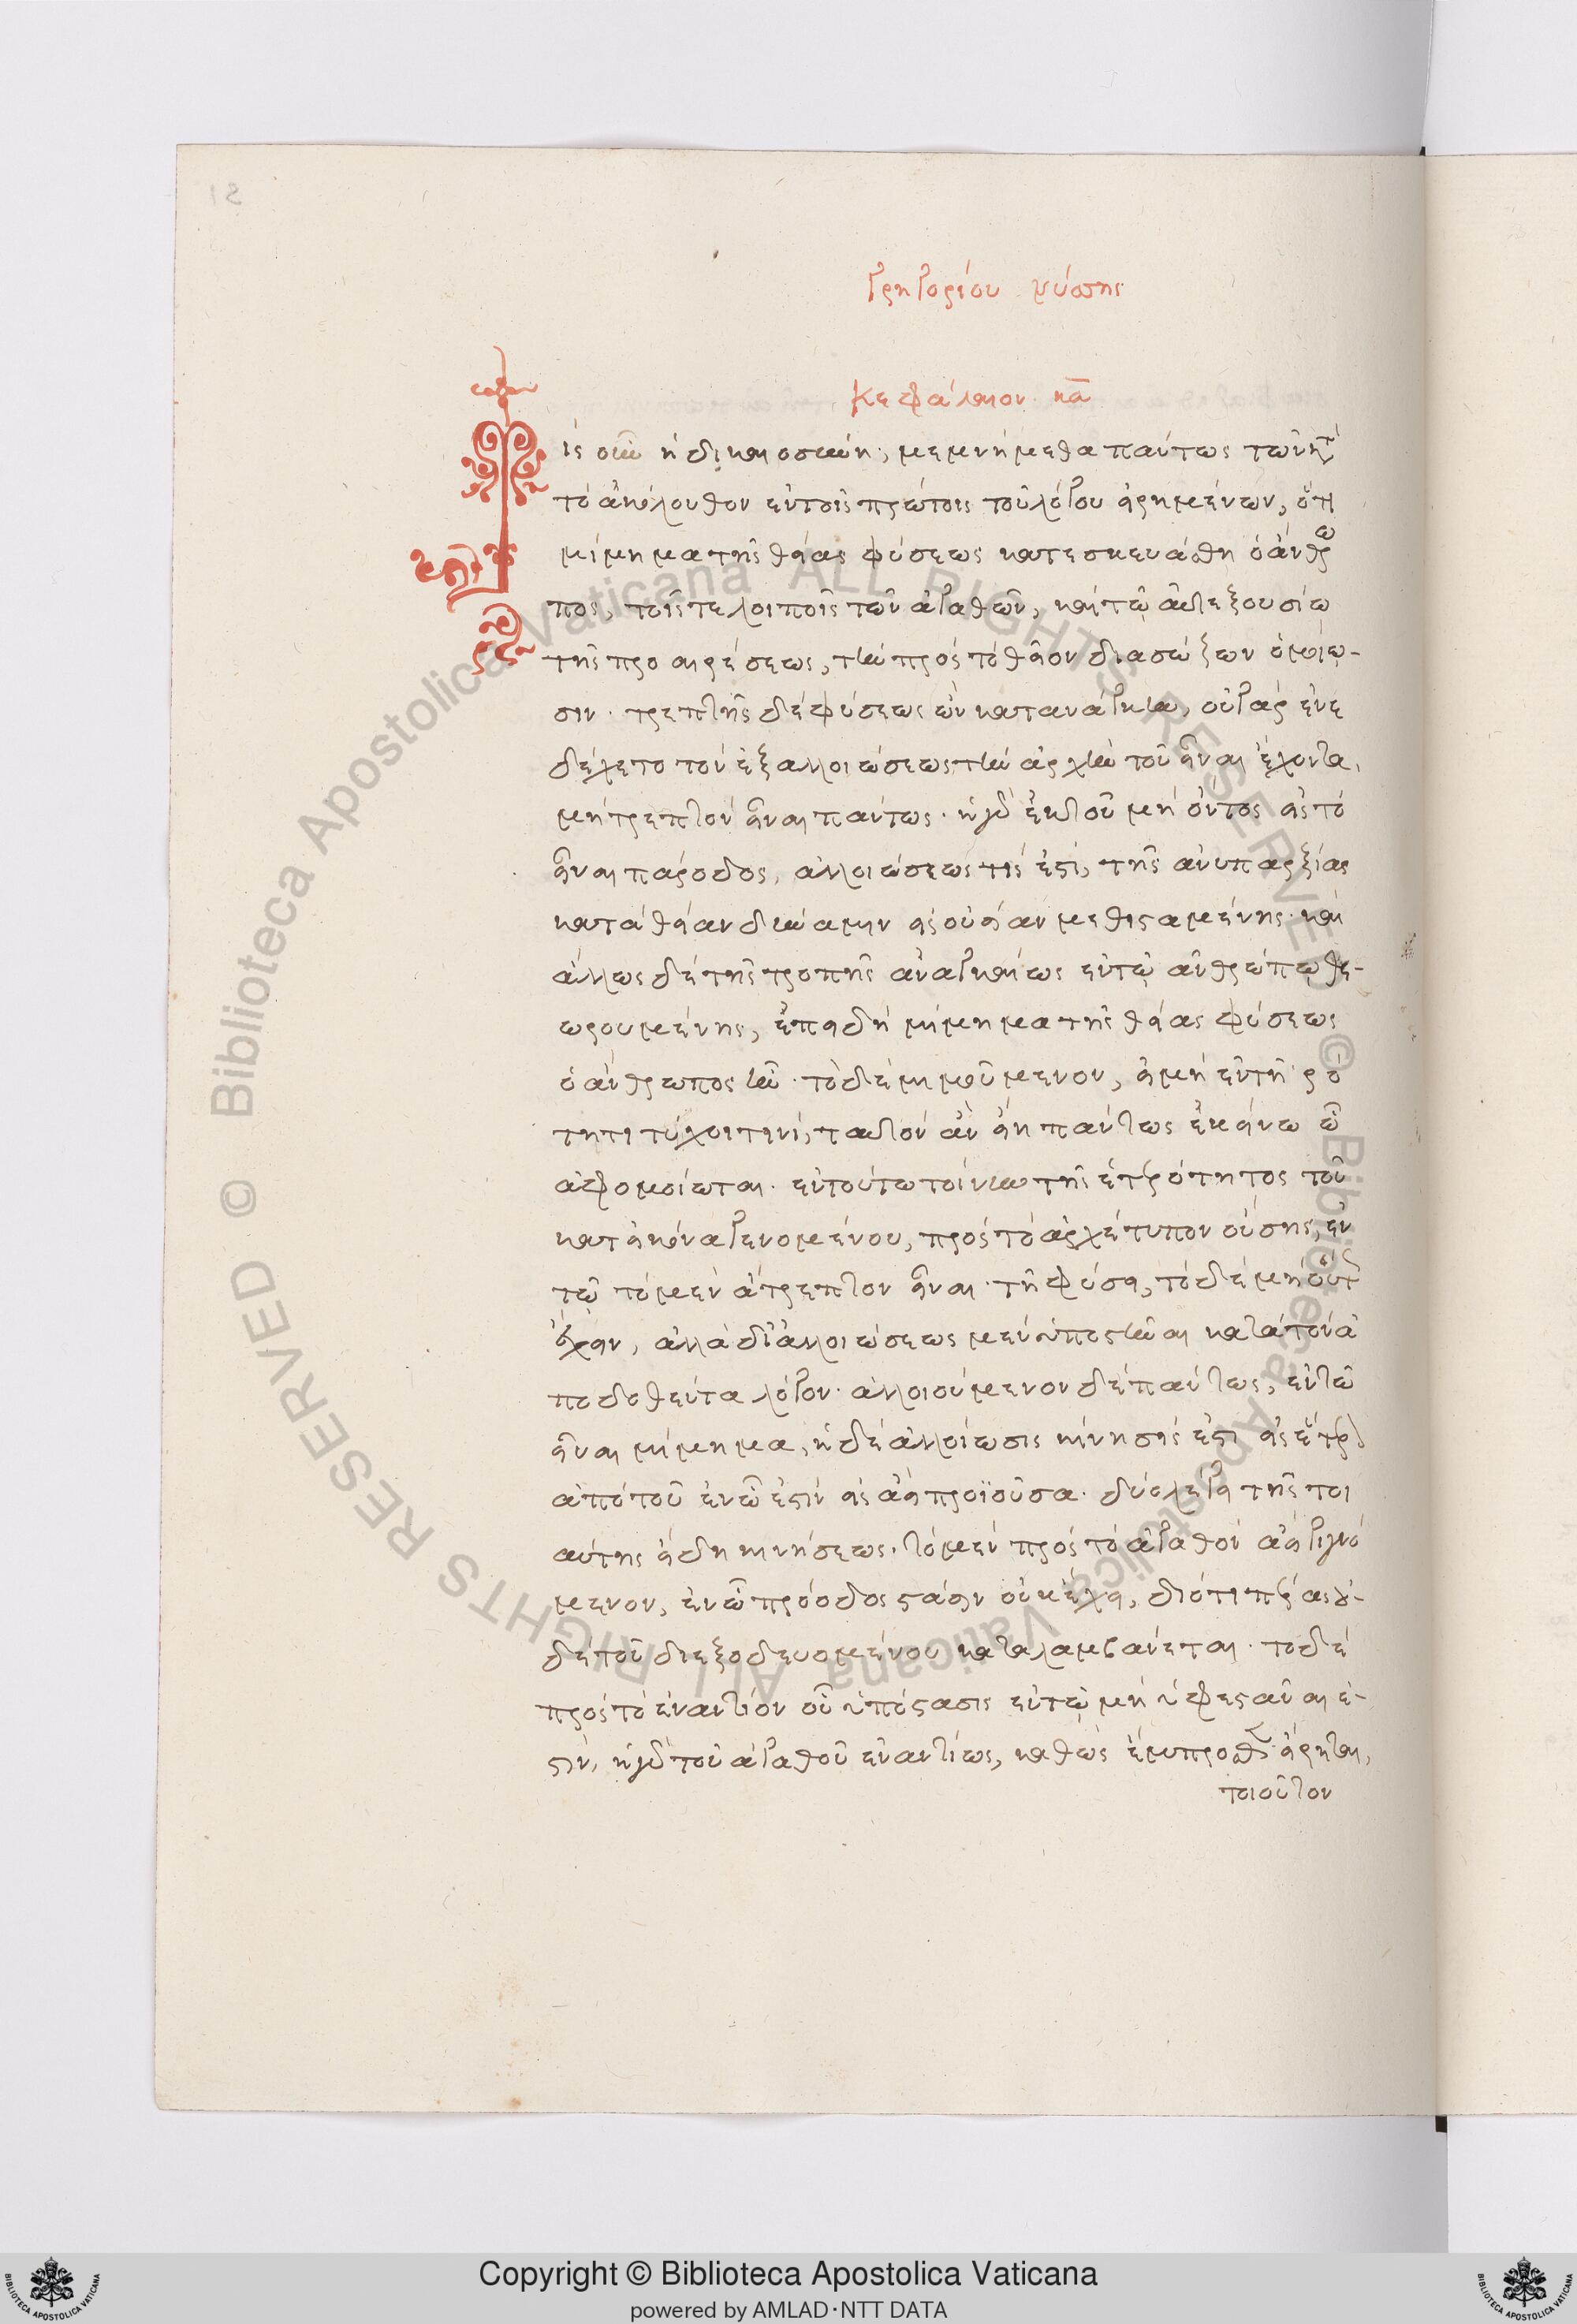 Γρηγορίου νύσσης
Κεφάλαιον κα
Τίς οὖν ἡ δικαιοσύνη; μεμνήμεθα πάντως τῶν κατὰ
τὸ ἀκόλουθον ἐν τοῖς πρώτοις τοῦ λόγου εἰρημένων, ὅτι
μίμημα τῆς θείας φύσεως κατεσκευάσθη ὁ ἄνθρω
πος, τοῖς τε λοιποῖς τῶν ἀγαθῶν, καὶ τῷ αὐτεξουσίῳ
τῆς προαιρέσεως, τὴν πρὸς τὸ θεῖον διασώζων ὁμοίω-
σιν. τρεπτῆς δὲ φύσεως ὢν κατ' ἀνάγκην, οὐ γὰρ ἐνε
δέχετο τὸν ἐξ ἀλλοιώσεως τὴν ἀρχὴν τοῦ εἶναι ἔχοντα,
μὴ τρεπτὸν εἶναι πάντως. ἡ γὰρ ἐκ τοῦ μὴ ὄντος εἰς τὸ
εἶναι πάροδος, ἀλλοίωσις τίς ἐστι, τῆς ἀνυπαρξίας
κατὰ θείαν δύναμιν εἰς οὐσίαν μεθισταμένης. καὶ
ἄλλως δὲ τῆς τροπῆς ἀναγκαίως ἐν τῷ ἀνθρώπῳ θε-
ωρουμένης, ἐπειδὴ μίμημα τῆς θείας φύσεως
ὁ ἄνθρωπος ἦν. τὸ δὲ μιμούμενον, εἰ μὴ ἐν
τητι τύχοι τινί, ταυτὸν ἂν εἴη πάντως ἐκείνῳ ᾧ
ἀφομοίωται. ἐν τούτῳ τοίνυν τῆς ἑτερότητος τοῦ
κατ' εἰκόνα γενομένου, πρὸς τὸ ἀρχέτυπον οὔσης, ἐν
τῷ τὸ μὲν ἄτρεπτον εἶναι τῇ φύσει, τὸ δὲ μὴ οὕτως
ἔχειν, ἀλλὰ δι' ἀλλοιώσεως μὲν ὑποστῆναι κατὰ τὸν ἀ
ποδοθέντα λόγον. ἀλλοιούμενον δὲ πάντως, ἐν τῷ
εἶναι μίμημα, ἡ δὲ ἀλλοίωσις κίνησίς ἐστι εἰς ἕτερον
ἀπὸ τοῦ ἐν ᾧ ἐστιν εἰς ἀεὶ προϊοῦσα. δύο λέγει τῆς τοι
αύτης εἴδη κινήσεως. τὸ μὲν πρὸς τὸ ἀγαθὸν ἀεὶ γιγνό
μενον, ἐν ᾧ πρόοδος στάσιν οὐκ ἔχει, διότι πέρας οὐ-
δὲ τοῦ διεξοδευομένου καταλαμβάνεται. τὸ δὲ
πρὸς τὸ ἐναντίον οὗ ὑπόστασις ἐν τῷ μὴ ὑφεστάναι ἐ-
στίν, ἡ γὰρ τοῦ ἀγαθοῦ ἐναντίως, καθὼς ἔμπροσθεν εἴρηται,
τοιοῦτον